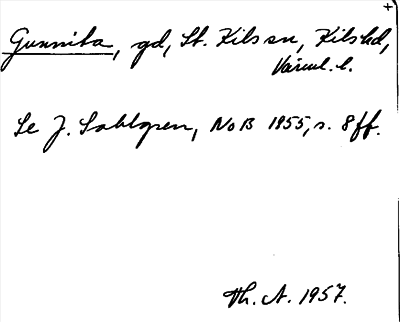 Gunnita, gd, St. Kils sn, Kils hd,
Värml. l.
Se J. Sahlgren, NoB 1955, s. 8 ff.
Th. A. 1957.